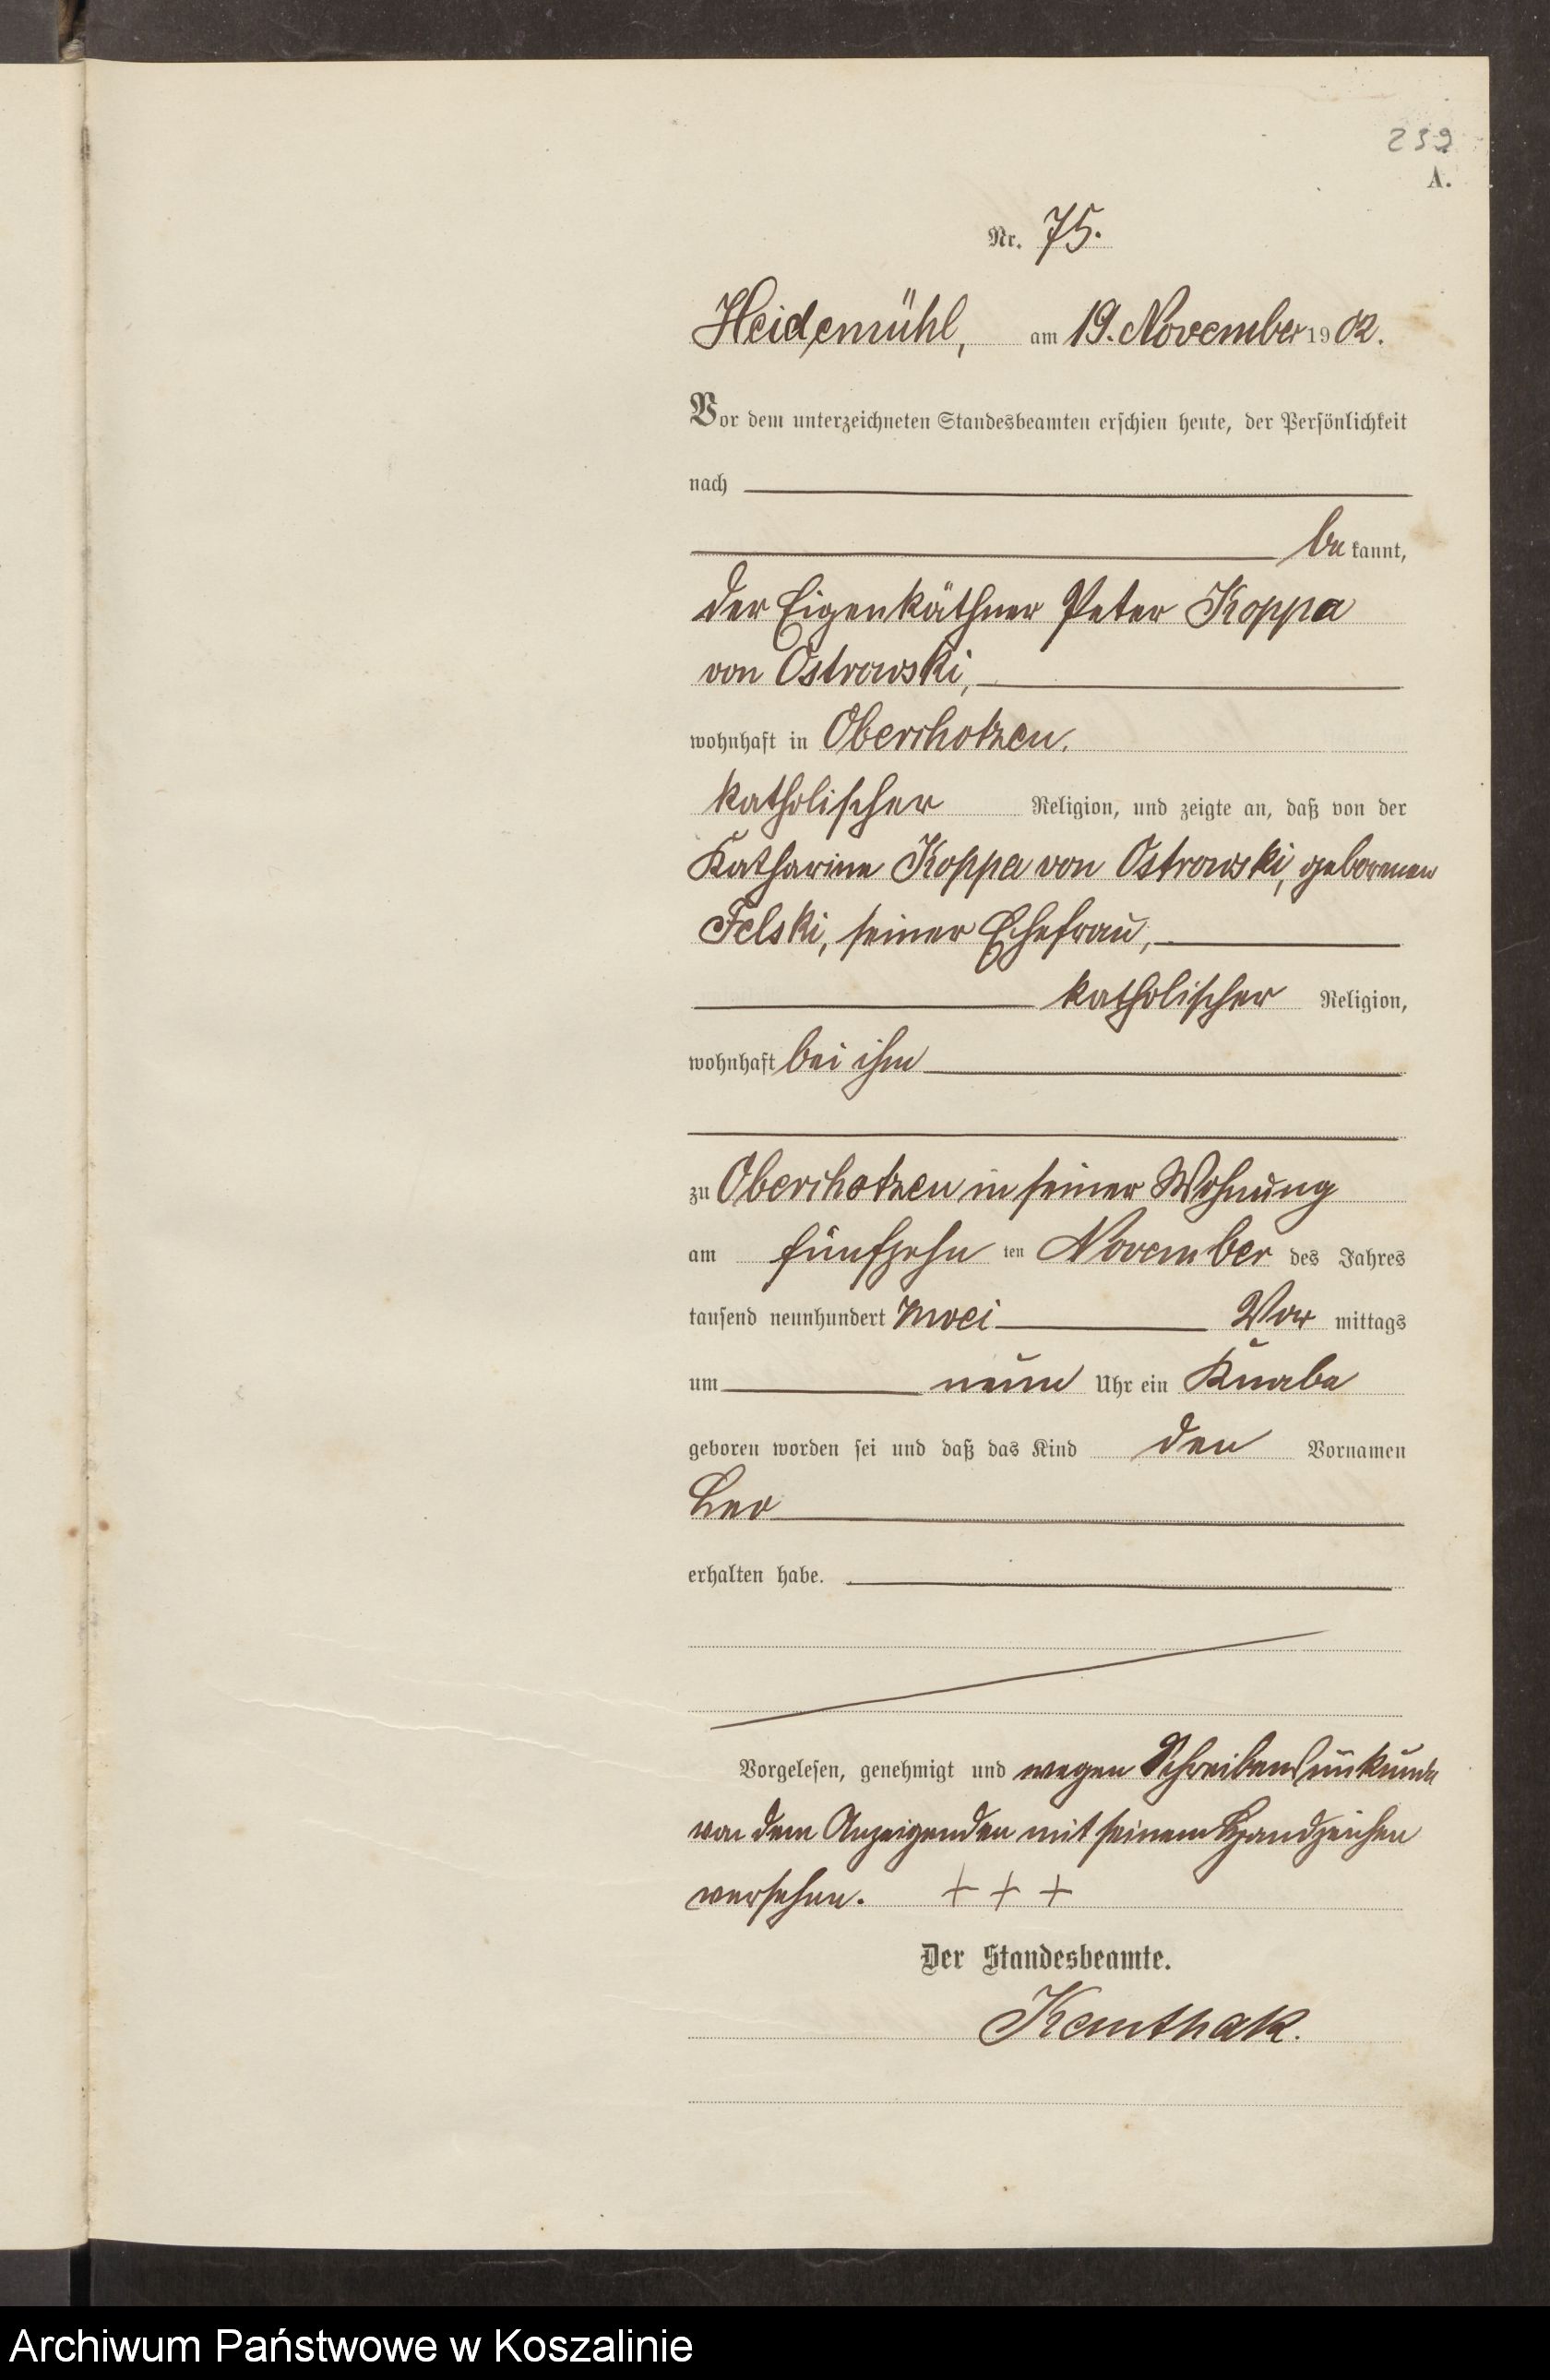 239
A.
Nr. 75.
Heidemühl, am 19. November 1902.
Vor dem unterzeichneten Standesbeamten erschien heute, der Persönlichkeit
nach
be kannt,
der Eigenkäthner Peter Koppa
von Ostrowski,
wohnhaft in Oberchotzen.
katholischer Religion, und zeigte an, daß von der
Katharine Koppa von Ostrowski, geborenen
Felski, seiner Ehefrau,
katholischer Religion,
wohnhaft bei ihm
zu Oberchotzen in seiner Wohnung
am fünfzehn ten November des Jahres
tausend neunhundert zwei Vor mittags
um neun Uhr ein Knabe
geboren worden sei und daß das Kind den Vornamen
Leo
erhalten habe.
Vorgelesen, genehmigt und wegen Schreibensunkunde
von dem Anzeigenden mit seinem Handzeichen
versehen. + + +
Der Standesbeamte.
Kemthak.
Archiwum Państwowe w Koszalinie